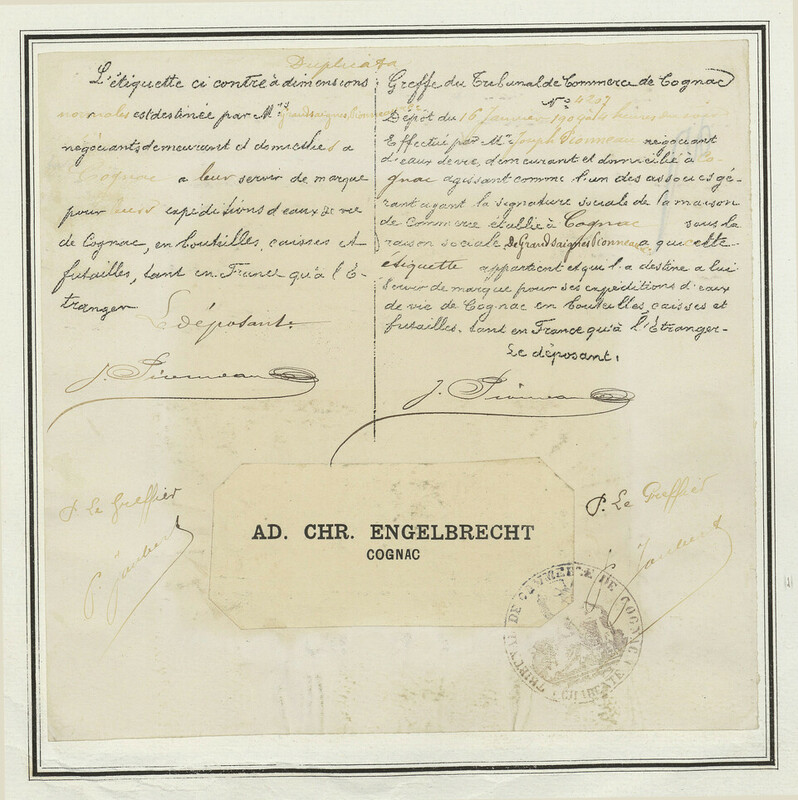 Duplicata
L'étiquette ci contre à dimensions
normales est destinée par Mrs
négociants demeurant et domiciliés à
Cognac a leur servir de marque
pour leurs expéditions d'eaux de vie
de Cognac, en bouteilles, caisses et
futailles, tant en France qu'à l'É-
tranger
Le déposant.
J. Pionneau
Greffe du Tribunal de Commerce de Cognac
No 4207
Dépôt du 16 Janvier
Effectué par Mr Joseph Pionneau négociant
d'eaux de vie, demeurant et domicilié à Co-
gnac agissant comme l'un des associés gé-
rant ayant la signature sociale de la maison
de Commerce établie à Cognac sous la
raison sociale De Grandsaignes Pionneau a qui cette
étiquette appartient et qui l'a destine a lui
servir de marque pour ses expéditions d'eaux
de vie de Cognac en bouteilles, caisses et
futailles. tant en France qu'à l'Étranger-
Le déposant,
J. Pionneau
P. Le Greffier
P. Le Greffier
AD. CHR. ENGELBRECHT
COGNAC
TRIBUNAL DE COMMERCE DE COGNAC
(CHARENTE)